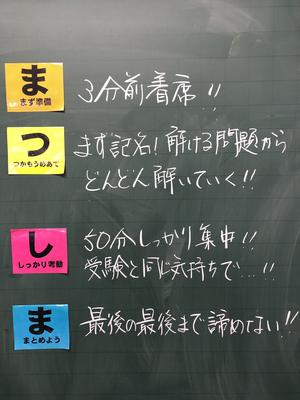 ま
まず準備
3分前着席!!
つ
つかもうめあて
まず記名!解ける問題から
どんどん解いていく!!
し
しっかり考動
50分しっかり集中!!
受験と同じ気持ちで…!!
ま
まとめよう
最後の最後まで諦めない!!